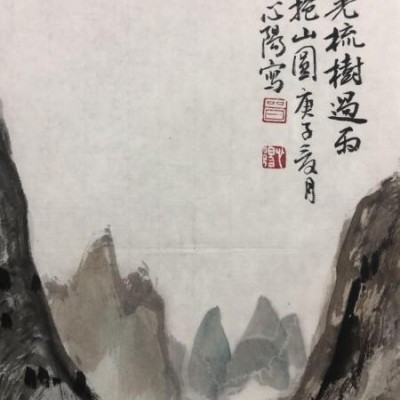 梳樹過雨
抱山圖庚子夏月
心陽寫